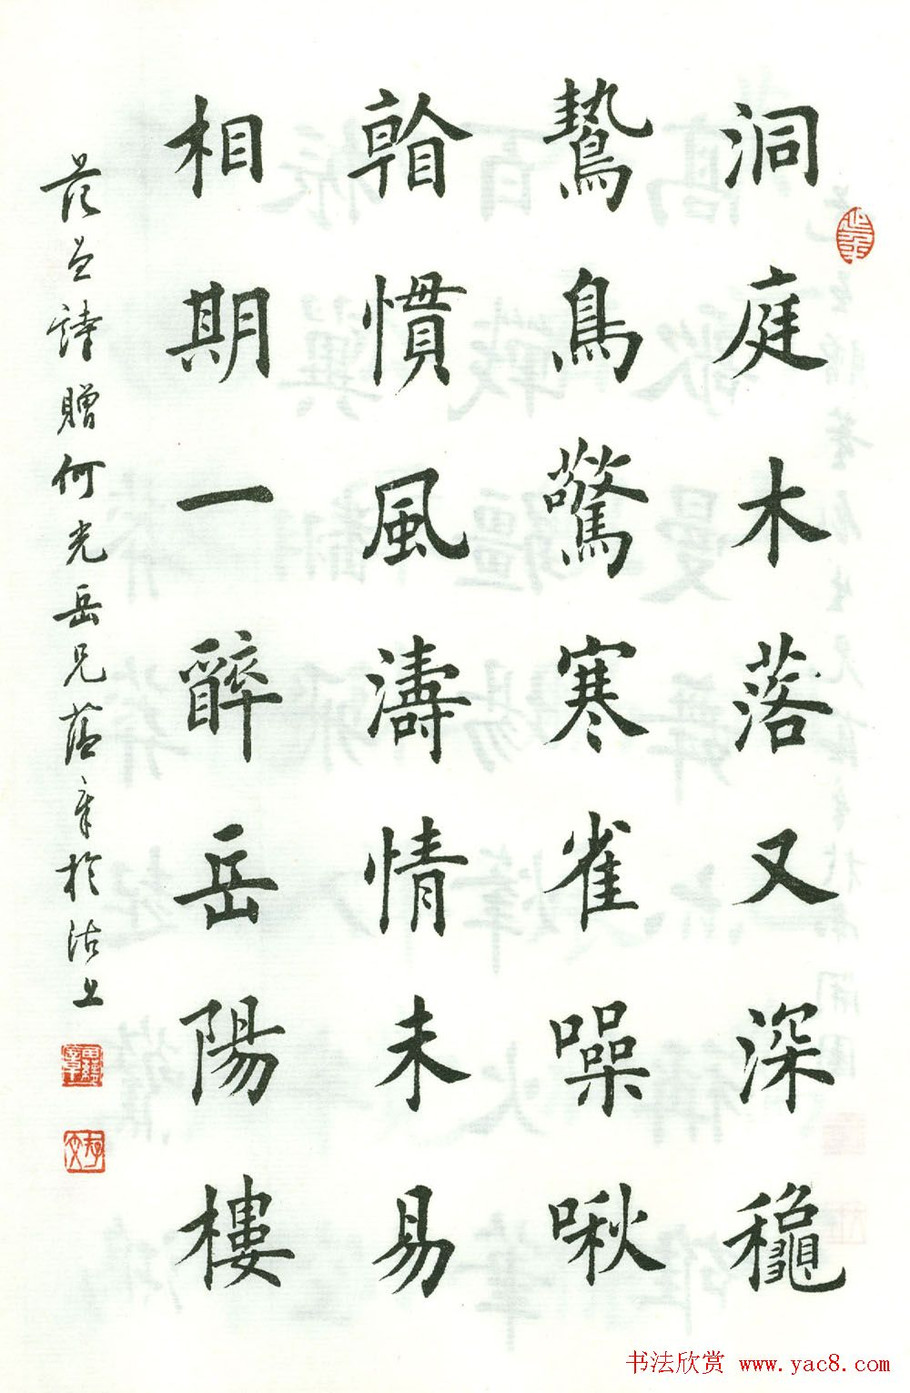 洞庭木落又深龝
鷙鳥驚寒雀噪啾
看慣風濤情未易
相期一醉岳陽樓
范曾詩贈何光岳兄蕴章於沽上
书法欣赏 www.yac8.com